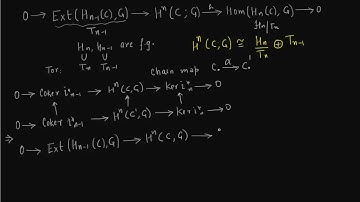 0 → Ext(Hn-1(C), G) → Hⁿ(C; G) —h→ Hom(Hn(C), G) → 0
Tn-1
Hn/Tn
Hn, Hn-1 are f.g.
∪ ∪
Tor: Tn Tn-1
Hⁿ(C, G) ≅ Hn/Tn ⊕ Tn-1
Chain map C. —α→ C.'
0 → Coker i*n-1 → Hⁿ(C, G) → Ker i*n → 0
0 → Coker i*n-1 → Hⁿ(C', G) → Ker i*n → 0
⇒ 0 → Ext(Hn-1(C), G) → Hⁿ(C, G) →